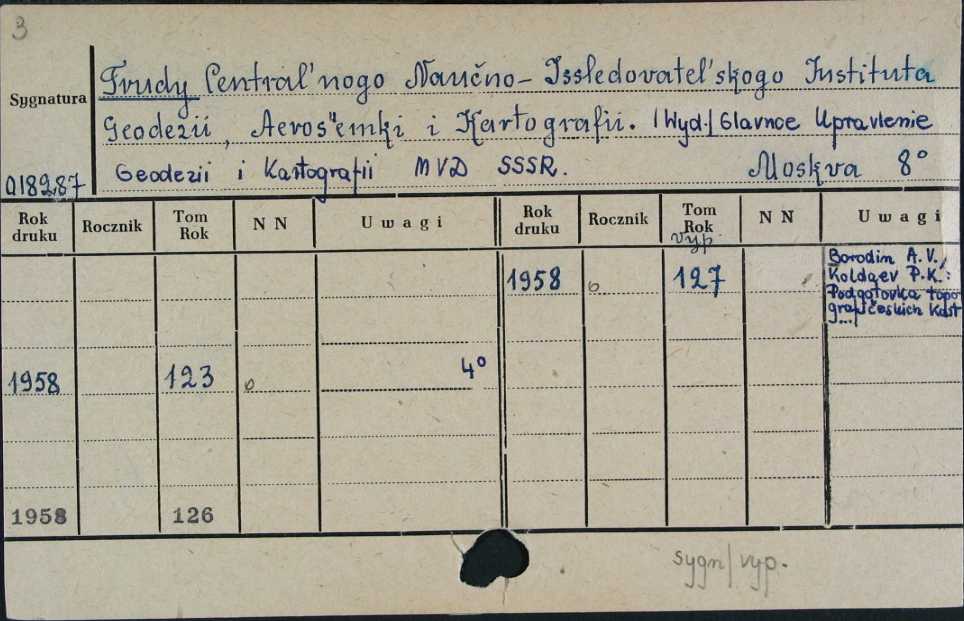 3
Sygnatura
Trudy Central'nogo Naučno-Issledovatel'skogo Instituta
Geodezii, Aeros"emki i Kartografii. |Wyd.| Glavnoe Upravlenie
0189,87 Geodezii i Kartografii MVD SSSR. Moskva 8°
Rok druku Rocznik Tom Rok N N Uwagi Rok druku Rocznik Tom Rok vyp. N N Uwagi
1958 6 127 Borodin A.V.,
Koldaev P.K.:
Podgotovka topo
grafičeskich kart
[...]
1958 123 o 4°
1958 126
sygn/vyp.